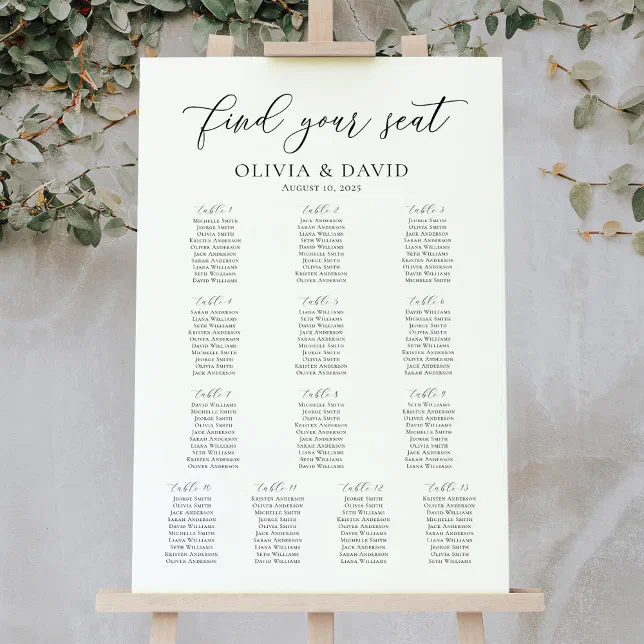 find your seat
OLIVIA & DAVID
August 10, 2025
table 1
Michelle Smith
Jeorge Smith
Olivia Smith
Kristen Anderson
Oliver Anderson
Jack Anderson
Sarah Anderson
Liana Williams
Seth Williams
David Williams
table 2
Jack Anderson
Sarah Anderson
Liana Williams
Seth Williams
David Williams
Michelle Smith
Jeorge Smith
Olivia Smith
Kristen Anderson
Oliver Anderson
table 3
Jeorge Smith
Olivia Smith
Jack Anderson
Sarah Anderson
Liana Williams
Seth Williams
Kristen Anderson
Oliver Anderson
David Williams
Michelle Smith
table 4
Sarah Anderson
Liana Williams
Seth Williams
Kristen Anderson
Oliver Anderson
David Williams
Michelle Smith
Jeorge Smith
Olivia Smith
Jack Anderson
table 5
Liana Williams
Seth Williams
David Williams
Jack Anderson
Sarah Anderson
Michelle Smith
Jeorge Smith
Olivia Smith
Kristen Anderson
Oliver Anderson
table 6
David Williams
Michelle Smith
Jeorge Smith
Olivia Smith
Liana Williams
Seth Williams
Kristen Anderson
Oliver Anderson
Jack Anderson
Sarah Anderson
table 7
David Williams
Michelle Smith
Jeorge Smith
Olivia Smith
Jack Anderson
Sarah Anderson
Liana Williams
Seth Williams
Kristen Anderson
Oliver Anderson
table 8
Michelle Smith
Jeorge Smith
Olivia Smith
Kristen Anderson
Oliver Anderson
Jack Anderson
Sarah Anderson
Liana Williams
Seth Williams
David Williams
table 9
Seth Williams
Kristen Anderson
Oliver Anderson
David Williams
Michelle Smith
Jeorge Smith
Olivia Smith
Jack Anderson
Sarah Anderson
Liana Williams
table 10
Jeorge Smith
Olivia Smith
Jack Anderson
Sarah Anderson
David Williams
Michelle Smith
Liana Williams
Seth Williams
Kristen Anderson
Oliver Anderson
table 11
Kristen Anderson
Oliver Anderson
Michelle Smith
Jeorge Smith
Olivia Smith
Jack Anderson
Sarah Anderson
Liana Williams
Seth Williams
David Williams
table 12
Jeorge Smith
Olivia Smith
Michelle Smith
Kristen Anderson
Oliver Anderson
David Williams
Jack Anderson
Sarah Anderson
Liana Williams
Seth Williams
table 13
Kristen Anderson
Oliver Anderson
David Williams
Michelle Smith
Jack Anderson
Sarah Anderson
Liana Williams
Jeorge Smith
Olivia Smith
Seth Williams